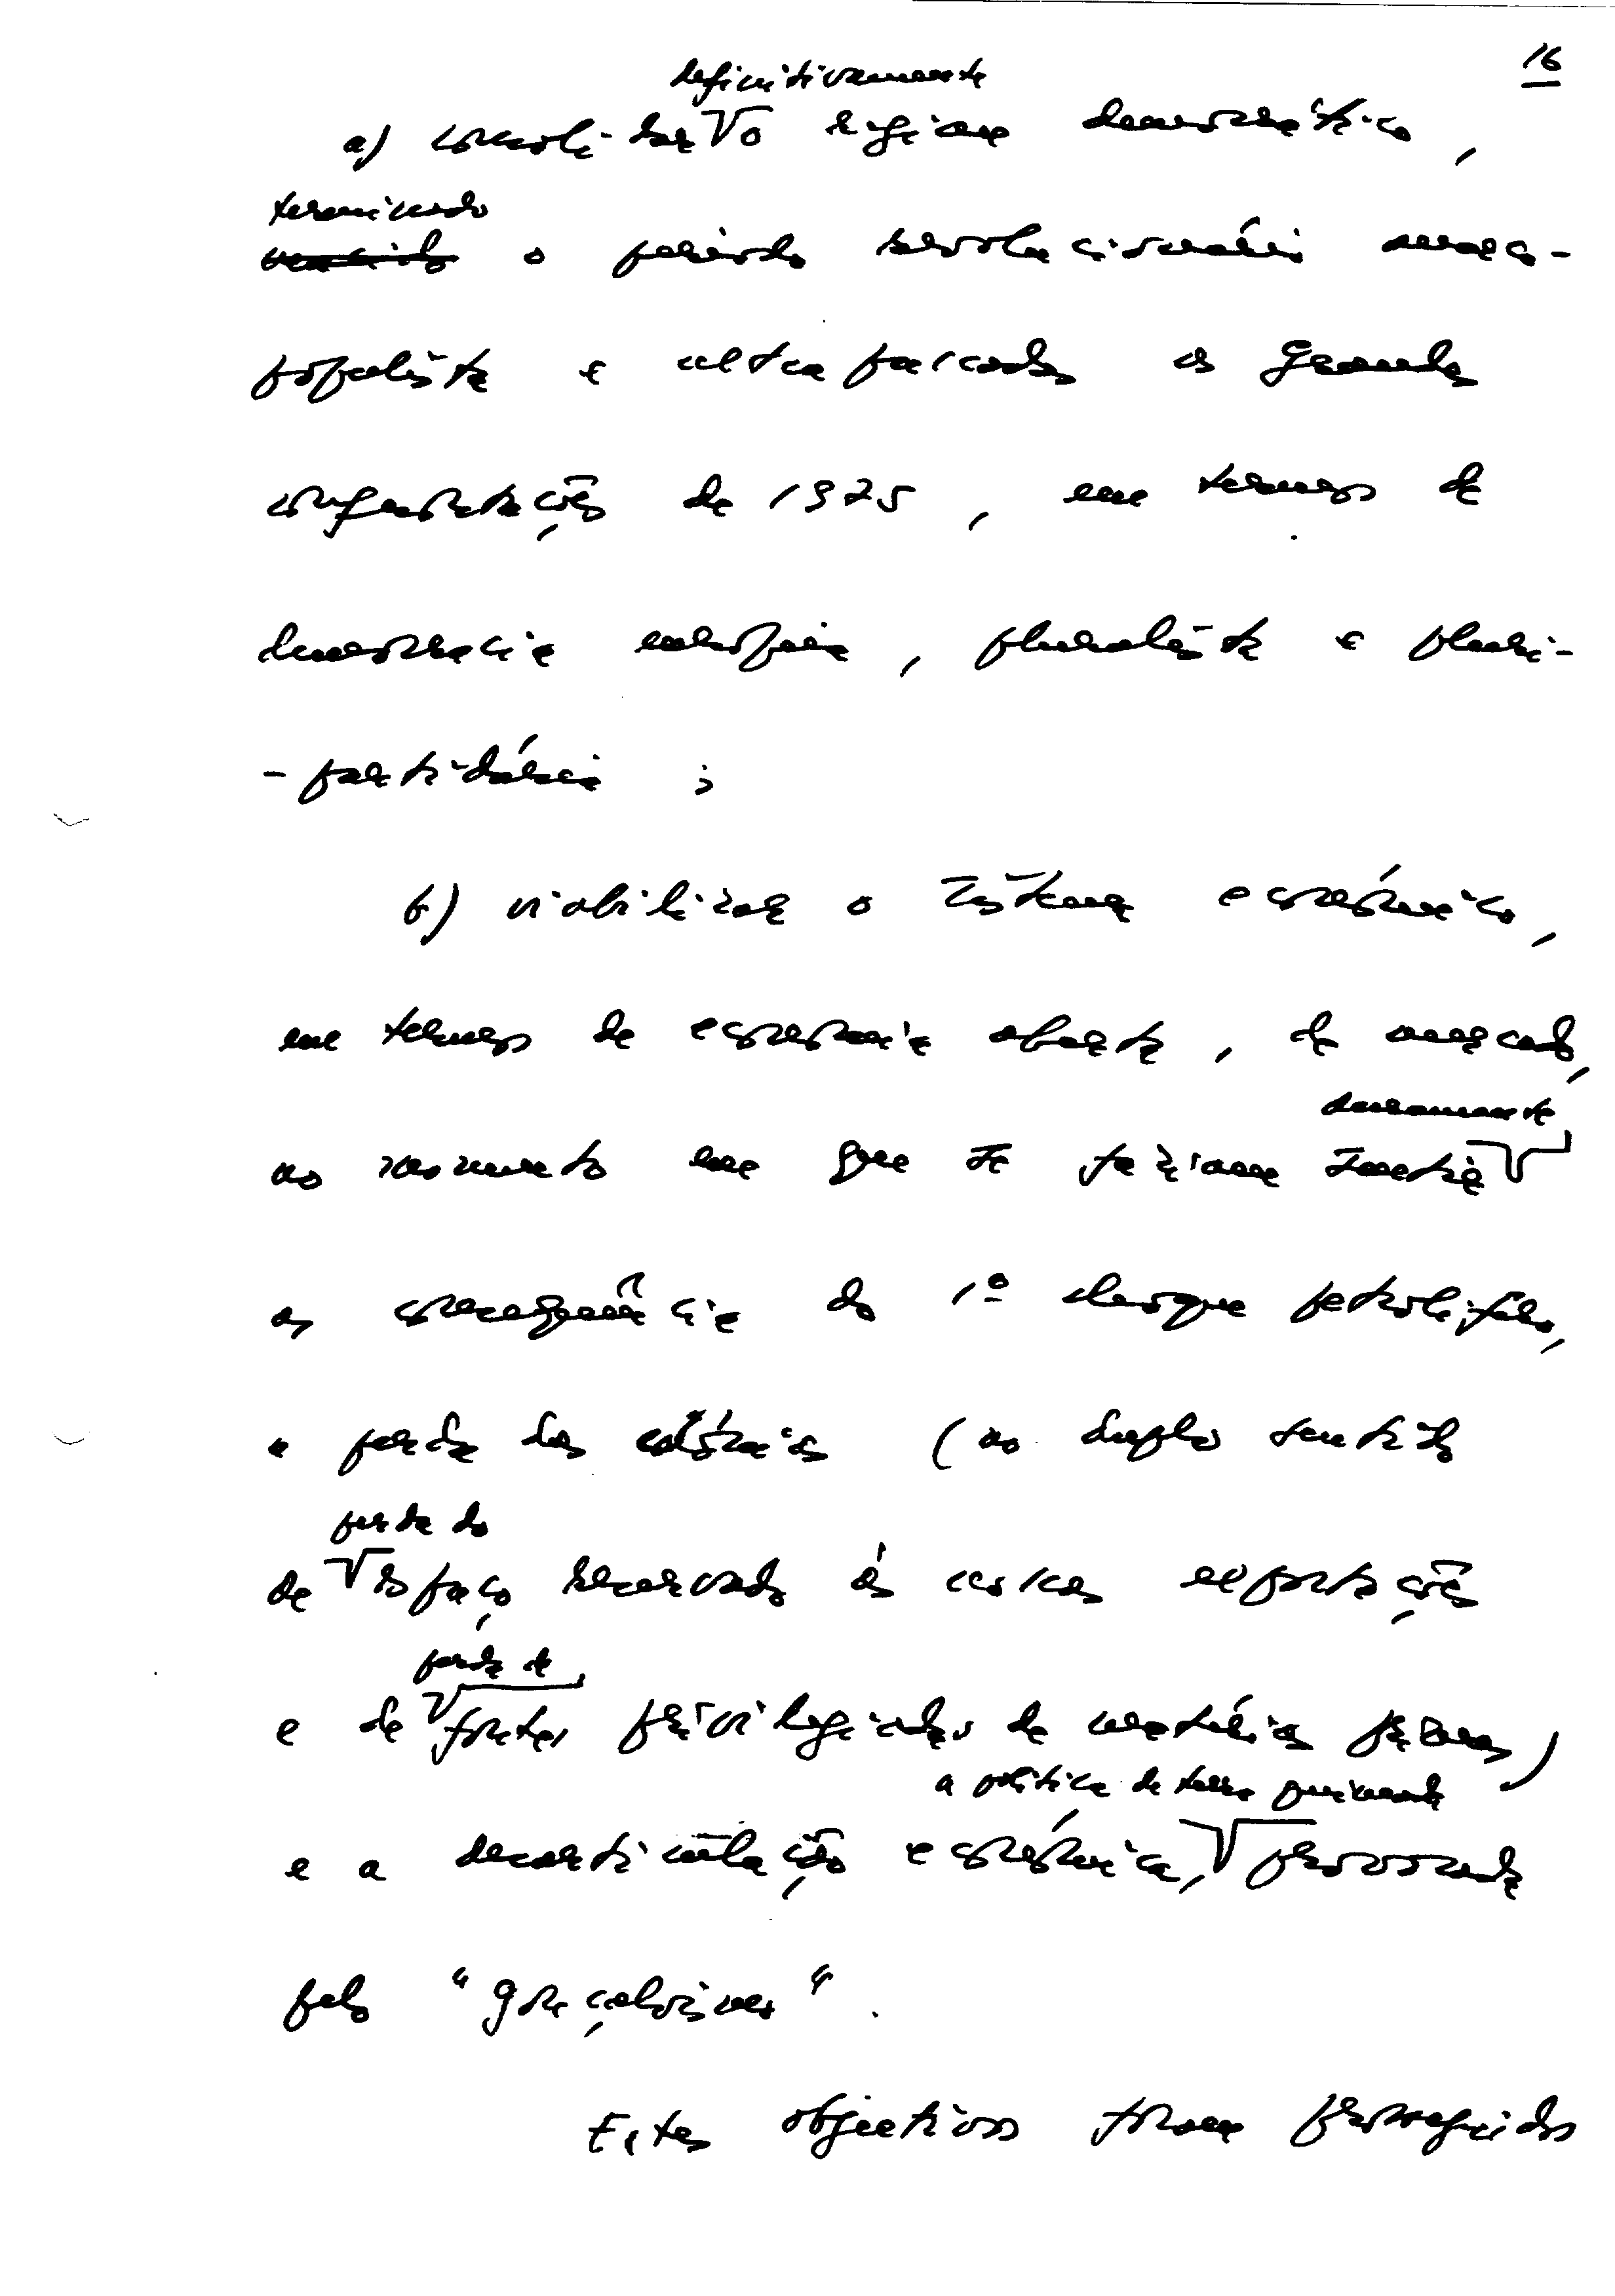 16
definitivamente
a) consolidar o regime democrático,
terminado
vencido o período revolucionário anarco-
populista e ultrapassadas as grandes
confrontações de 1975, em termos de
democracia europeia, pluralista e pluri-
-partidária;
b) viabilizar o sistema económico,
em termos de economia aberta, de mercado,
duramente
no momento em que se faziam sentir
as consequências do 1º choque petrolífero,
a perda das colónias (no duplo sentido
perda do
de espaço reservado às nossas exportações
perda de
e de fontes privilegiadas de matérias primas)
a política de terra queimada
e a desarticulação económica, provocada
pelo "gonçalvismo".
Estes objectivos foram prosseguidos